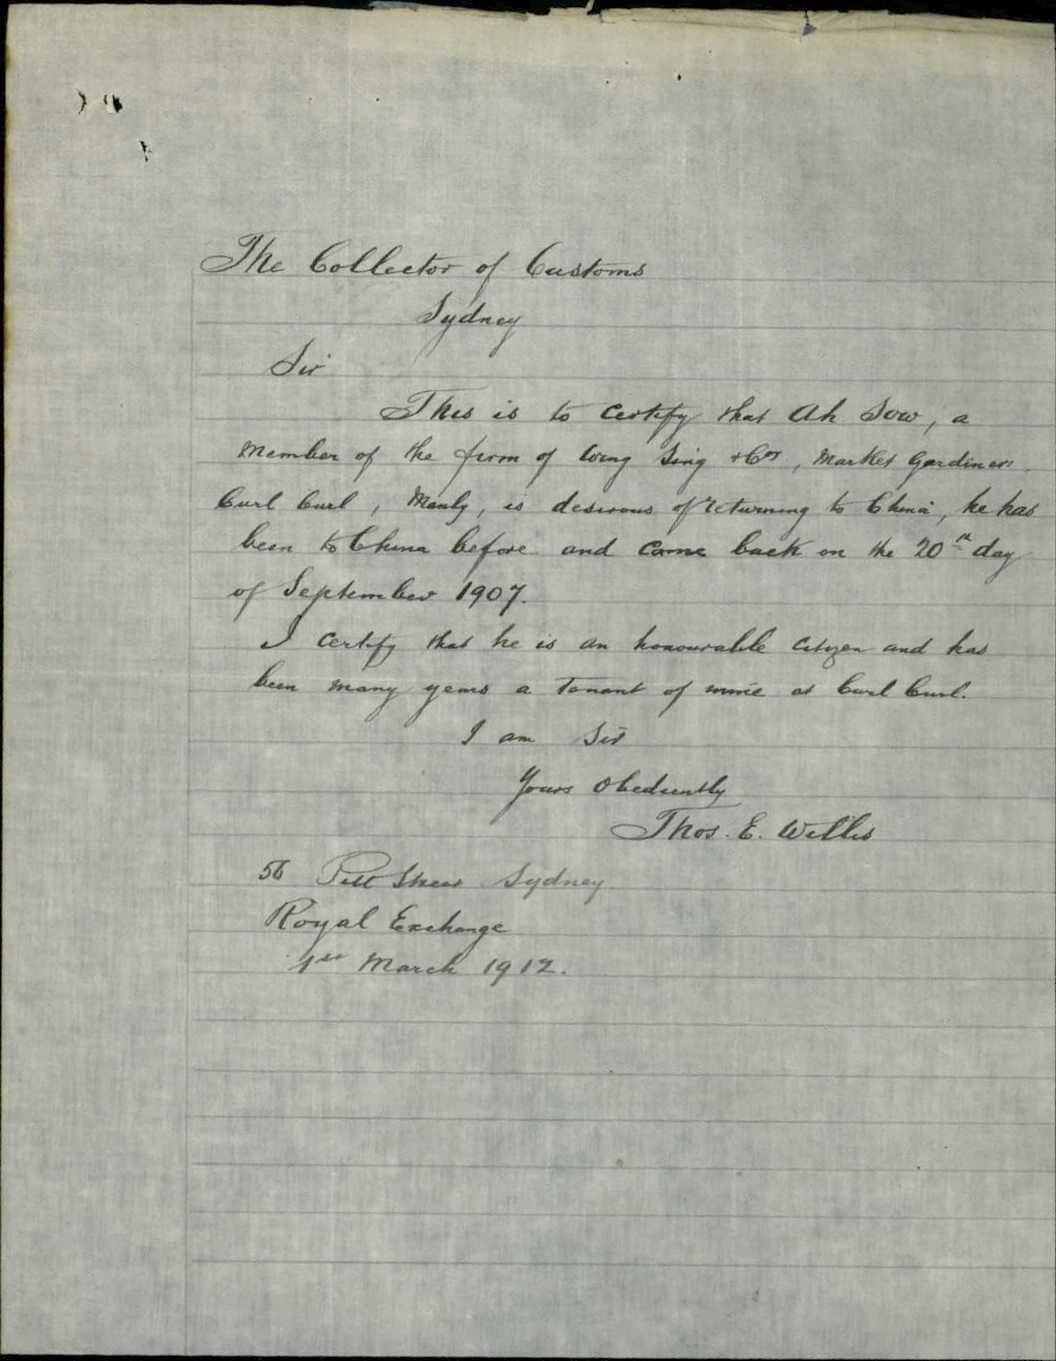 The Collector of Customs
Sydney
Sir
This is to certify that Ah Sow, a
member of the firm of Wing Sing & Cos, Market Gardiners
Curl Curl, Manly, is desirous of returning to China, he has
been to China before and came back on the 20th day
of September 1907.
I certify that he is an honourable citizen and has
been many years a tenant of mine at Curl Curl.
I am Sir
Yours obediently
Thos. E. Willis
56 Pitt Street Sydney
Royal Exchange
1st March 1912.